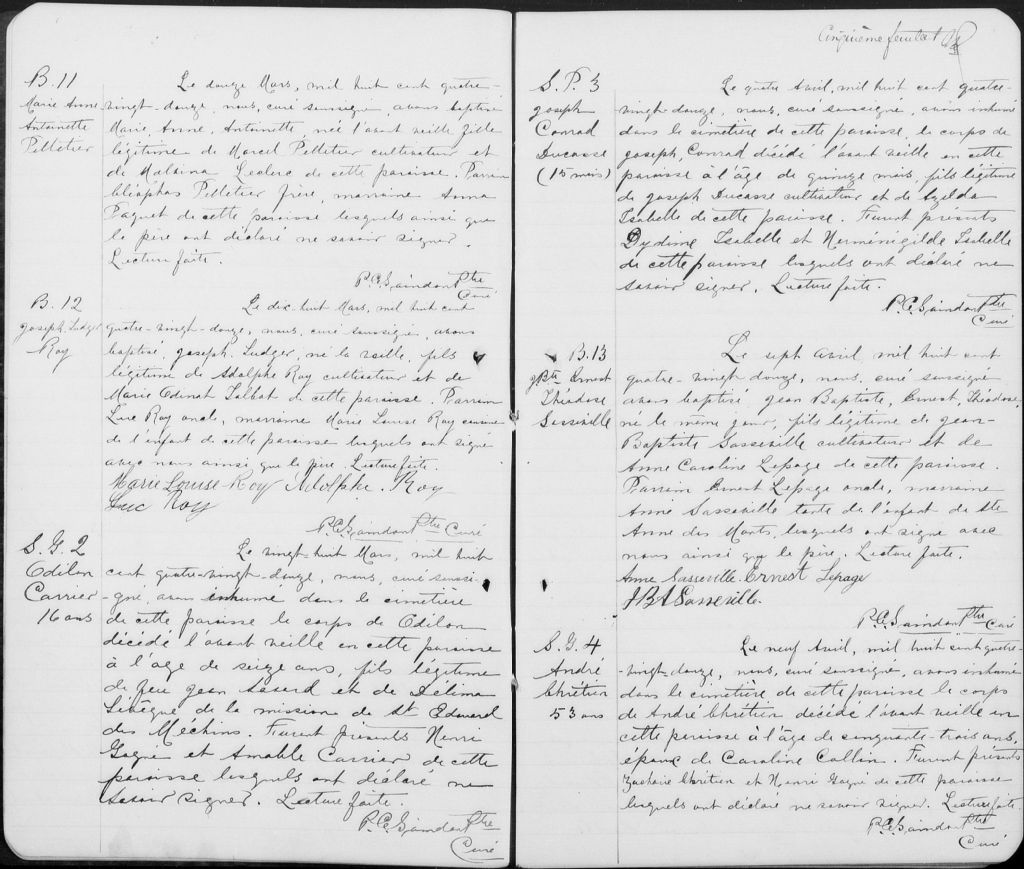 B. 11
Marie Anne
Antoinette
Pelletier
Le douze Mars, mil huit cent quatre-
vingt-douze, nous, curé soussigné, avons baptisé
Marie, Anne, Antoinette, née l'avant veille fille
légitime de Marcel Pelletier cultivateur et
de Malvina Leclerc de cette paroisse. Parrain
Cléophas Pelletier frère, marraine Anna
Paquet de cette paroisse lesquels ainsi que
le père ont déclaré ne savoir signer.
Lecture faite.
Ptre
Curé
B. 12
Joseph Ludger
Roy
Le dix-huit Mars, mil huit cent
quatre-vingt-douze, nous, curé soussigné, avons
baptisé, Joseph, Ludger, né la veille, fils
légitime de Adolphe Roy cultivateur et de
Marie Talbot de cette paroisse. Parrain
Luc Roy oncle, marraine Marie Louise Roy cousine
de l'enfant de cette paroisse lesquels ont signé
avec nous ainsi que le père. Lecture faite.
Marie Louise Roy Adolphe. Roy
Luc Roy
Ptre Curé
S. G. 2
Odilon
Carrier
16 ans
Le vingt-huit Mars, mil huit
cent quatre-vingt-douze, nous, curé soussi-
gné, avons inhumé dans le cimetière
de cette paroisse le corps de Odilon
décédé l'avant veille en cette paroisse
à l'âge de seize ans, fils légitime
de feu Jean et de Délima
Lévêque de la mission de St Edouard
des Méchins. Furent présents Henri
Gagné et Amable Carrier de cette
paroisse lesquels ont déclaré ne
savoir signer. Lecture faite.
Ptre
Curé
Cinquième feuillet
S. P. 3
Joseph
Conrad
Ducasse
(15 mois)
Le quatre Avril, mil huit cent quatre-
vingt-douze, nous, curé soussigné, avons inhumé
dans le cimetière de cette paroisse, le corps de
Joseph, Conrad décédé l'avant veille en cette
paroisse à l'âge de quinze mois, fils légitime
de Joseph Ducasse cultivateur et de Ezilda
Isabelle de cette paroisse. Furent présents
Dydime Isabelle et Herménégilde Isabelle
de cette paroisse lesquels ont déclaré ne
savoir signer. Lecture faite.
Ptre
Curé
B. 13
J Bte Ernest
Théodose
Sasseville
Le sept Avril, mil huit cent
quatre-vingt douze, nous, curé soussigné
avons baptisé Jean Baptiste, Ernest, Théodose,
né le même jour, fils légitime de Jean-
Baptiste Sasseville cultivateur et de
Anne Caroline Lepage de cette paroisse.
Parrain Ernest Lepage oncle, marraine
Anne Sasseville tante de l'enfant de Ste
Anne des Monts, lesquels ont signé avec
nous ainsi que le père. Lecture faite.
Anne Sasseville. Ernest Lepage
J B A Sasseville.
Ptre Curé
S. G. 4
André
Chrétien
53 ans
Le neuf Avril, mil huit cent quatre-
vingt-douze, nous, curé soussigné, avons inhumé
dans le cimetière de cette paroisse le corps
de André Chrétien décédé l'avant veille en
cette paroisse à l'âge de cinquante-trois ans,
époux de Caroline Collin. Furent présents
Zacharie Chrétien et Henri Gagné de cette paroisse
lesquels ont déclaré ne savoir signer. Lecture faite.
Ptre
Curé